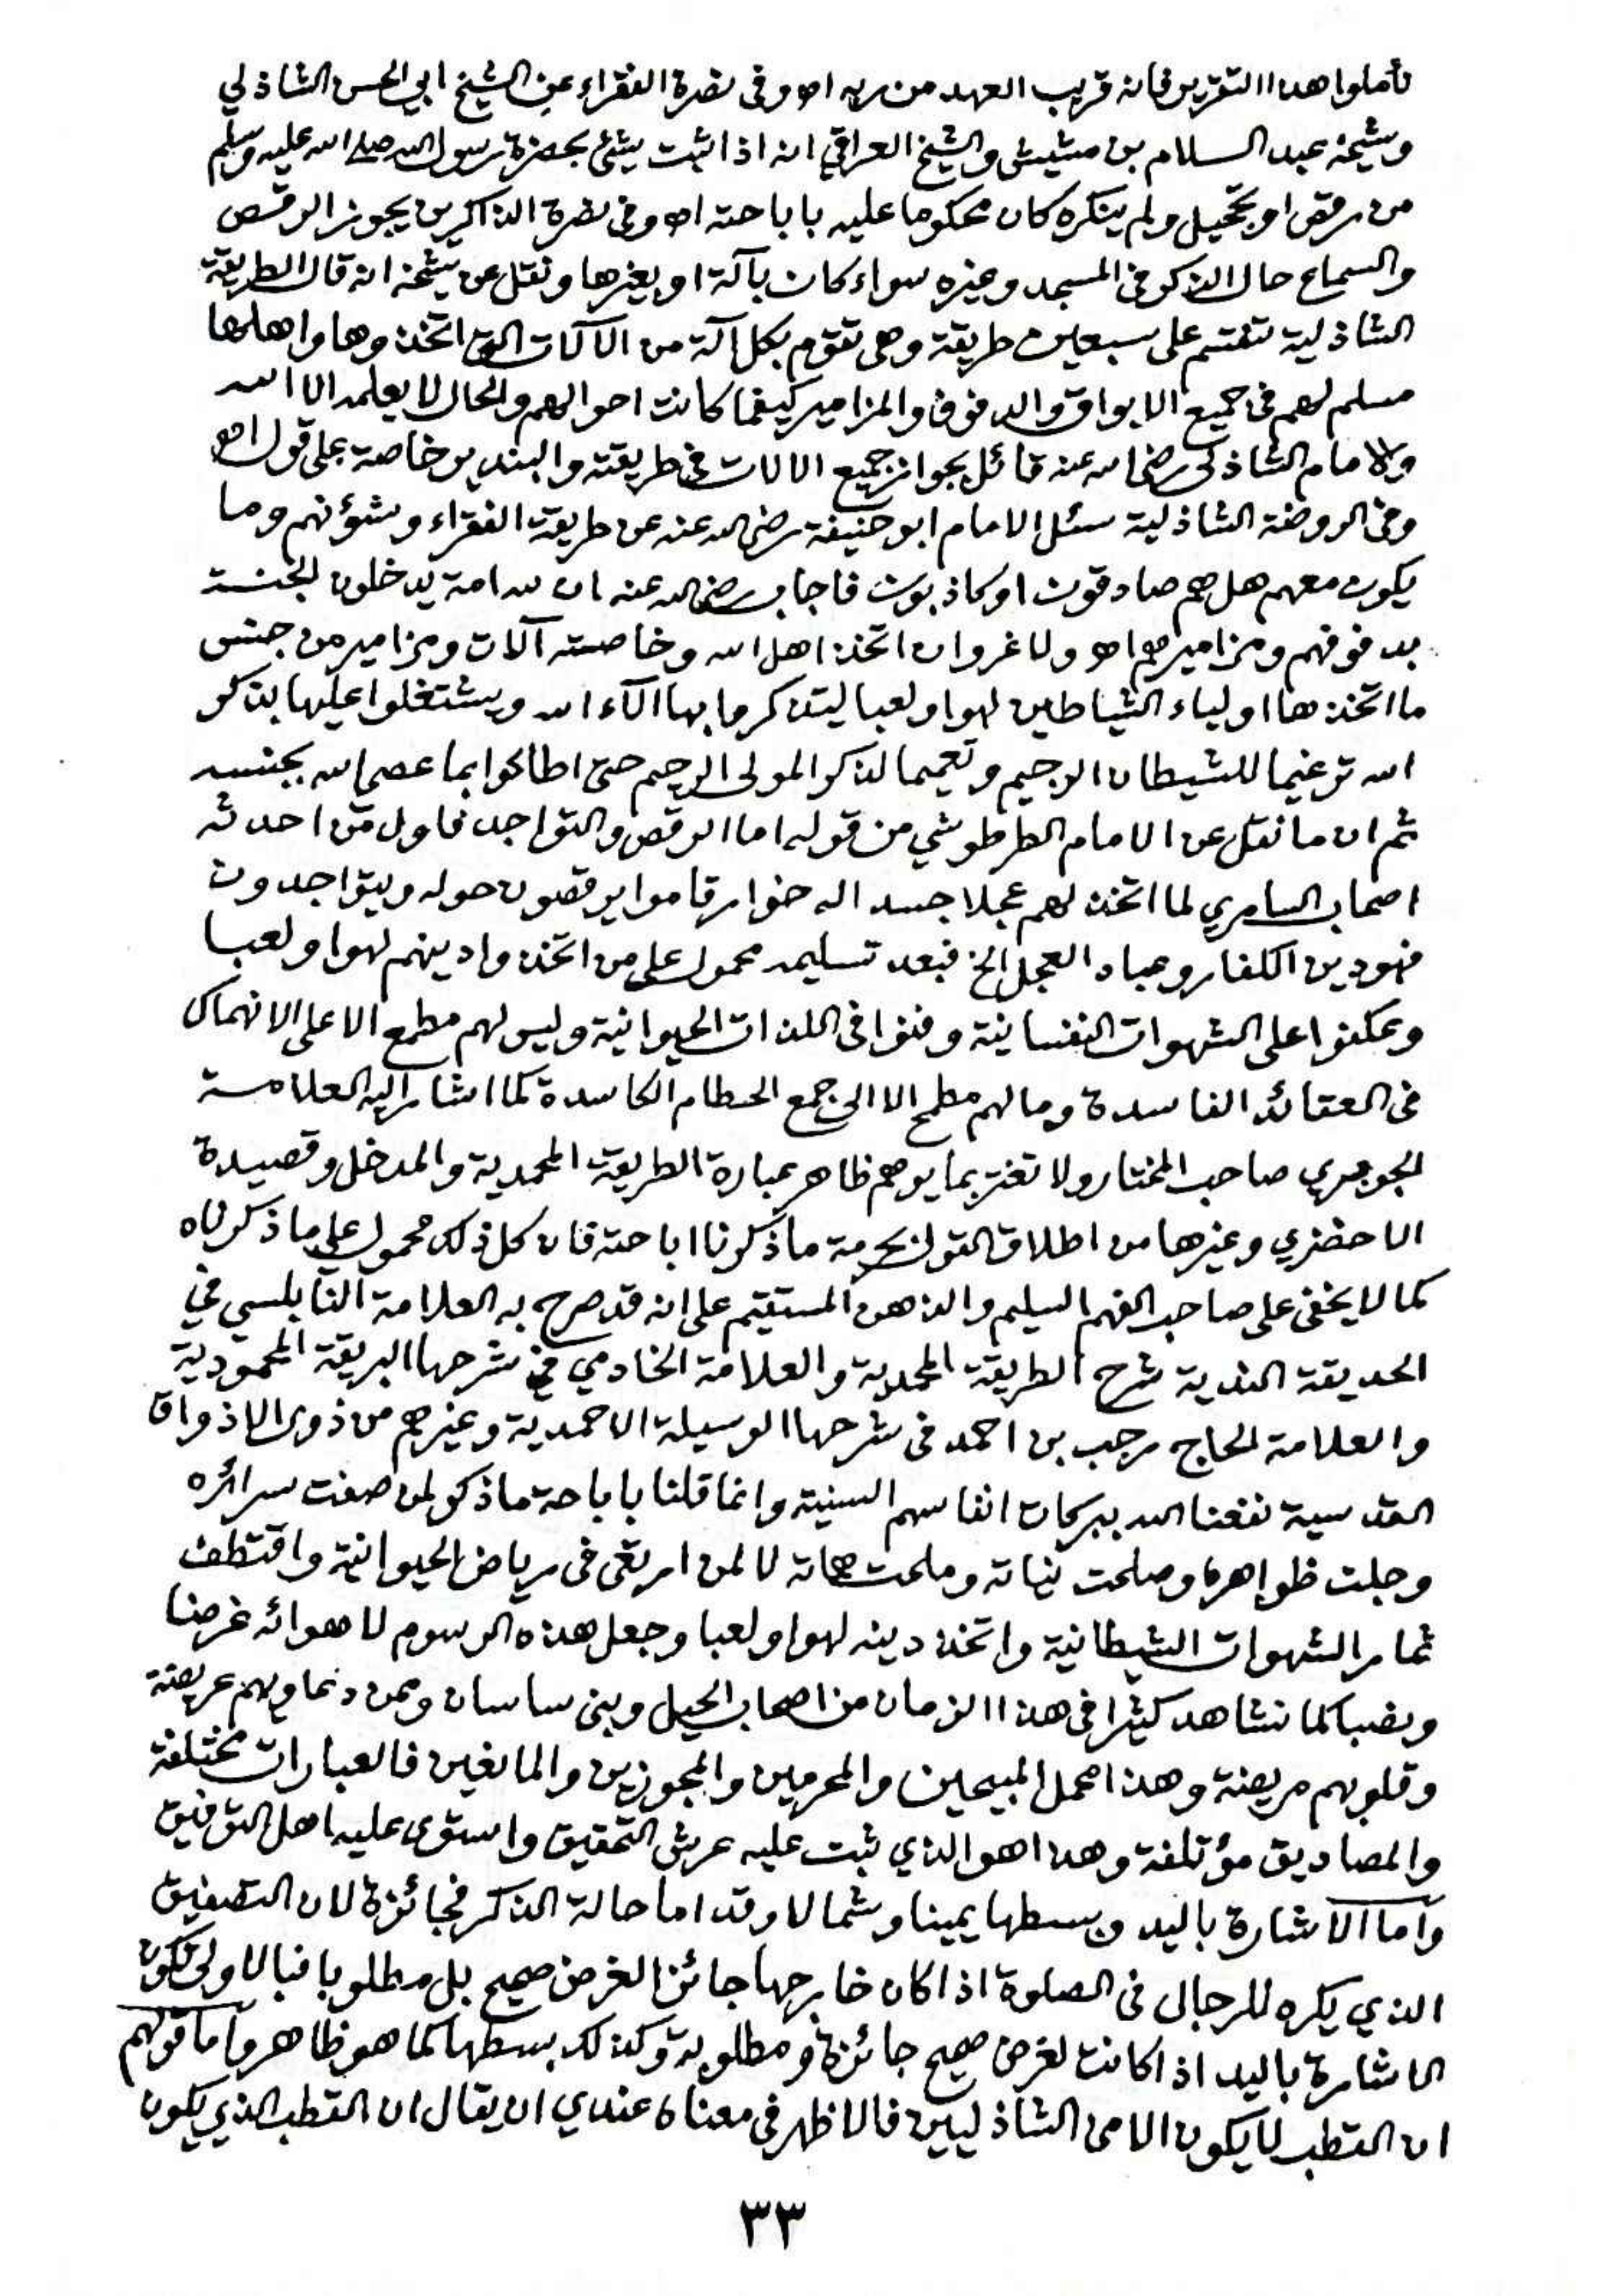 تأملوا هذا التقرير فانه قريب العهد من ربه اه وفى نصرة الفقراء عن الشيخ ابي الحسن الشاذلي
وشيخه عبد السلام بن مشيش والشيخ العراقي انه اذا ثبت شئ بحضرة رسول الله صلى الله عليه وسلم
من رقص او تحجيل ولم ينكره كان محكوما عليه باباحته اه وفى نصرة الذاكرين يجوز الرقص
والسماع حال الذكر فى المسجد وغيره سواء كان بآلة او بغيرها ونقل عن شيخه انه قال الطريقة
الشاذلية تنقسم على سبعين طريقة وهى تقوم بكل آلة من الآلات التى اتخذوها واهلها
مسلم لهم فى جميع الابواق والدفوف والمزامير كيفما كانت احوالهم والحال لا يعلمه الا الله
والامام الشاذلى رضى الله عنه قائل بجواز جميع الالات فى طريقته والبندير خاصة على قول اه
وفى الروضة الشاذلية سئل الامام ابو حنيفة رضى الله عنه عن طريقة الفقراء وشؤنهم وما
يكون معهم هل هم صادقون او كاذبون فاجاب رضى الله عنه ان لله امة يدخلون الجنة
بدفوفهم ومزاميرهم اه ولا غرو ان اتخذ اهل الله وخاصته آلات ومزامير من جنس
ما اتخذها اولياء الشياطين لهوا ولعبا ليتذكروا بها آلآء الله ويشتغلوا عليها بذكر
الله ترغيما للشيطان الرجيم وتعميما لذكر المولى الرحيم حتى اطاعوا بما عصى الله بجنسه
ثم ان ما نقل عن الامام الطرطوشي من قوله اما الرقص والتواجد فاول من احدثه
اصحاب السامري لما اتخذ لهم عجلا جسدا له خوار قاموا يرقصون حوله ويتواجدون
فهو دين الكفار وعباد العجل الخ فبعد تسليمه محمول على من اتخذوا دينهم لهوا ولعبا
وعكفوا على الشهوات النفسانية وفنوا فى اللذات الحيوانية وليس لهم مطمع الا على الانهماك
فى العقائد الفاسدة وما لهم مطمح الا الى جمع الحطام الكاسدة كما اشار اليه العلامة
الجوهري صاحب المختار ولا تغتر بما يوهم ظاهر عبارة الطريقة المحمدية والمدخل وقصيدة
الاخضري وغيرها من اطلاق القول بحرمة ما ذكرنا اباحته فان كل ذلك محمول على ما ذكرناه
كما لا يخفى على صاحب الفهم السليم والذهن المستقيم على انه قد صرح به العلامة النابلسي في
الحديقة الندية شرح الطريقة المحمدية والعلامة الخادمي فى شرحها البريقة المحمودية
والعلامة الحاج رجب بن احمد فى شرحها الوسيلة الاحمدية وغيرهم من ذوى الاذواق
القدسية نفعنا الله ببركات انفاسهم السنية وانما قلنا باباحة ما ذكر لمن صفت سرائره
وجلت ظواهره وصلحت نياته وملحت هماته لا لمن ارتقى فى رياض الحيوانية واقتطف
ثمار الشهوات الشيطانية واتخذ دينه لهوا ولعبا وجعل هذه الرسوم لاهوائه غرضا
ونصبا كما نشاهد كثيرا فى هذا الزمان من اصحاب الحيل وبنى ساسان وممن دعاويهم عريضة
وقلوبهم مريضة وهذا محمل المبيحين والمحرمين والمجوزين والمانعين فالعبارات مختلفة
والمصاديق مؤتلفة وهذا هو الذي ثبت عليه عرش التحقيق واستوى عليه اهل التوفيق
واما الاشارة باليد وبسطها يمينا وشمالا وقداما حالة الذكر فجائزة لان التصفيق
الذي يكره للرجال فى الصلوة اذا كان خارجها جائز الغرض صحيح بل مطلوبا فبالاولى تكون
الاشارة باليد اذا كانت لغرض صحيح جائزة ومطلوبة وكذلك بسطها كما هو ظاهر واما قولهم
ان القطب لا يكون الا من الشاذليين فالاظهر فى معناه عندي ان يقال ان القطب الذي يكون
٣٣